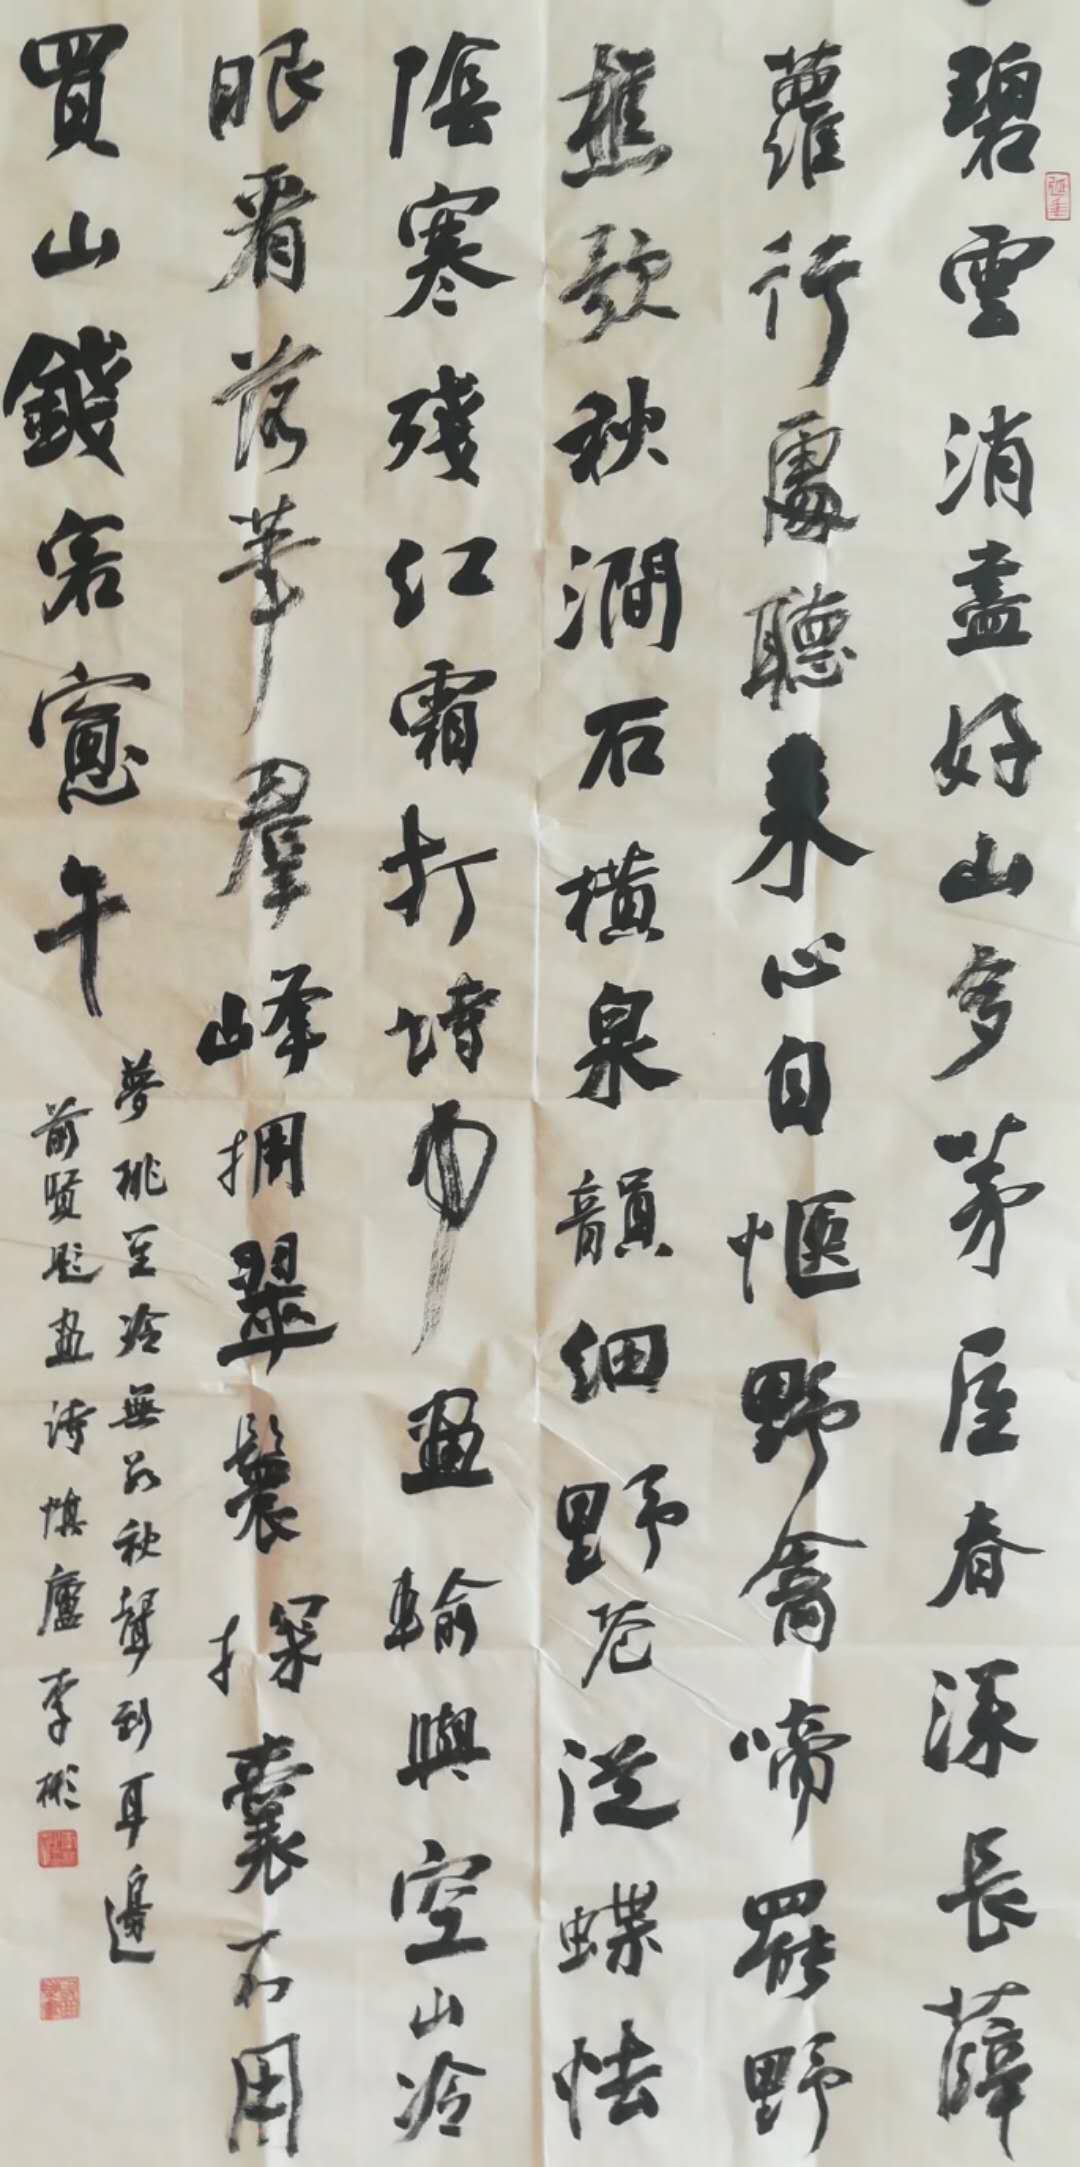 碧雲消盡好山多茅屋春深長薜
蘿行處聽來心自愜野禽啼罷野
樵歌秋澗石橫泉韻細野花從蝶怯
陰寒殘紅霜打時西畫輸與空山冷
眼看落華群峰擁翠鬟探囊不用
買山錢客窗午
夢挑至冷無及秋聲到耳邊
前賢題畫詩慎廬李彬